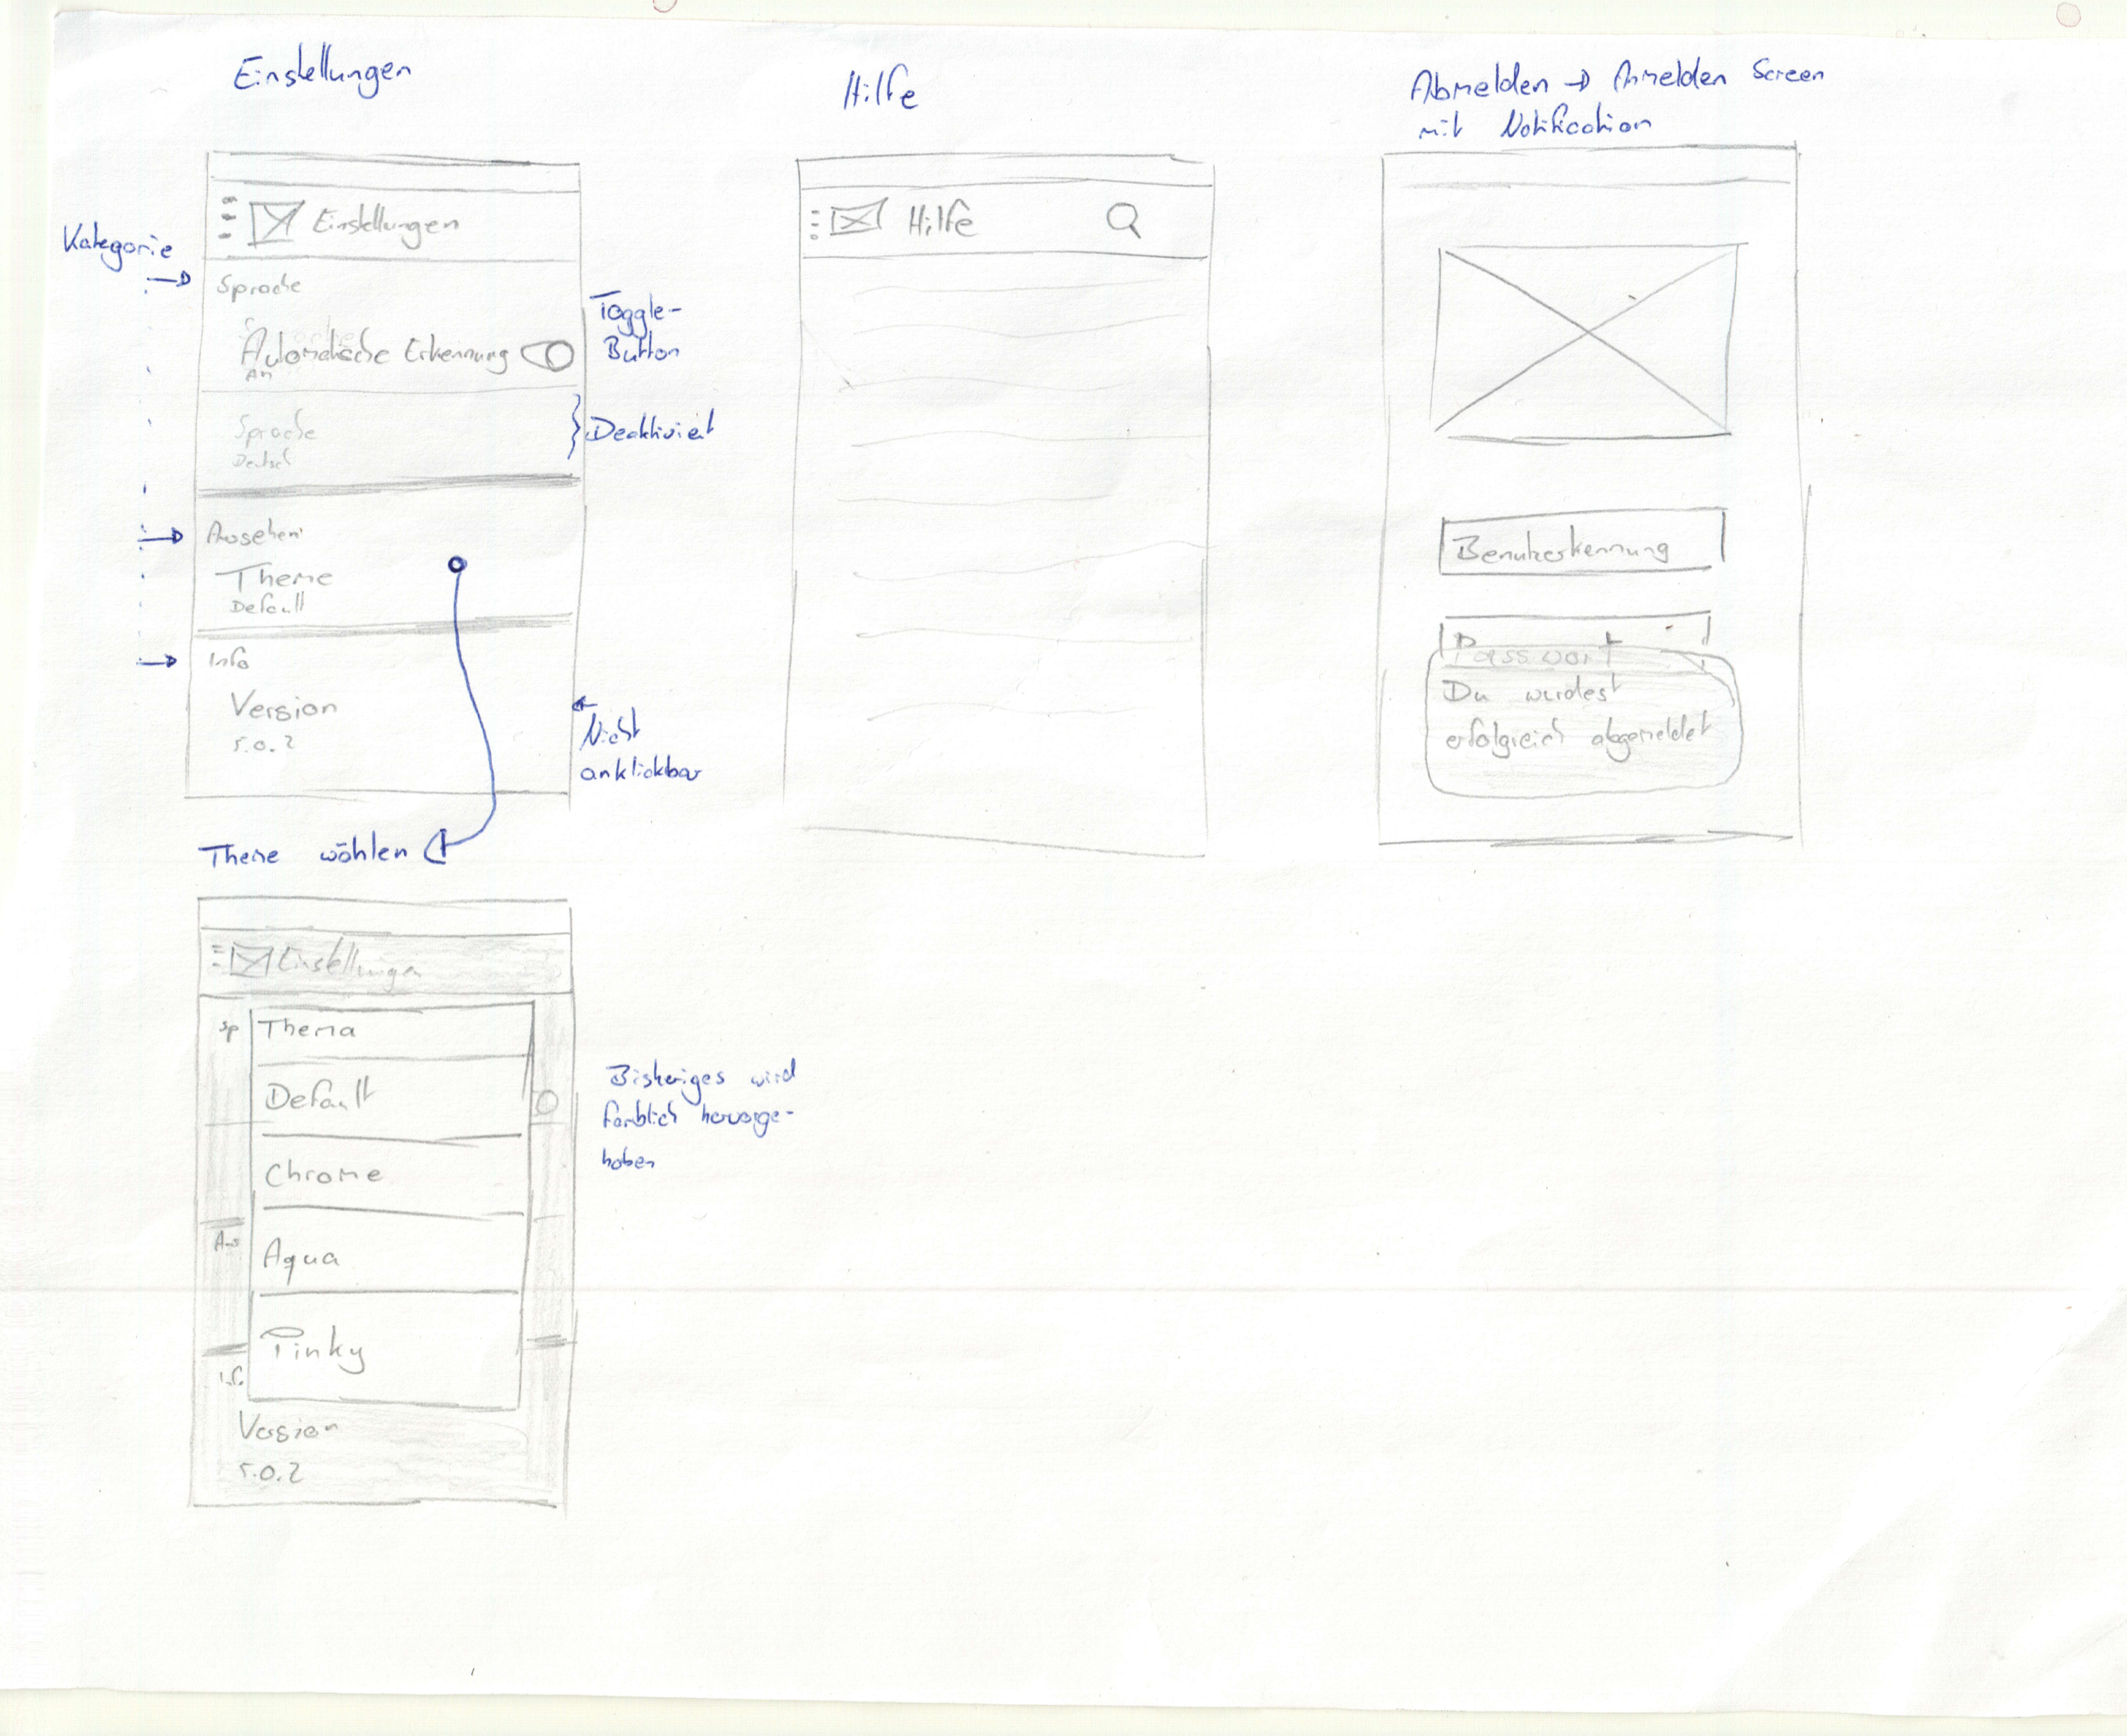 Einstellungen
Kategorie
Einstellungen
Sprache
Automatische Erkennung
An
Toggle-
Button
Sprache
Deutsch
Deaktiviert
Aussehen
Theme
Default
Info
Version
5.0.2
Nicht
anklickbar
Theme wählen
Einstellungen
Sp
Thema
Default
Chrome
Aus
Aqua
Pinky
Inf
Version
5.0.2
Bisheriges wird
farblich hervorge-
hoben
Hilfe
Hilfe
Abmelden → Anmelden Screen
mit Notification
Benutzerkennung
Passwort
Du wurdest
erfolgreich abgemeldet